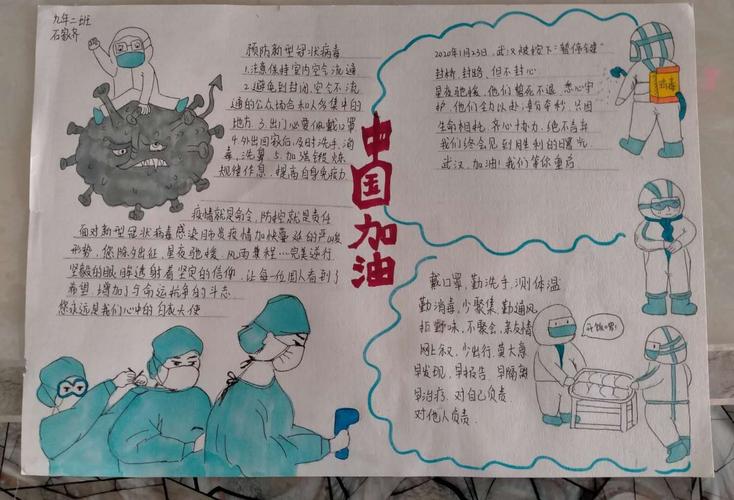 九年二班
石毅齐
预防新型冠状病毒
1.注意保持室内空气流通
2.避免到封闭、空气不流
通的公众场合和人多集中的
地方 3.出门必要佩戴口罩
4.外出回家后,及时洗手、消
毒、洗鼻 5.加强锻炼
规律作息,提高自身免疫力
疫情就是命令,防控就是责任
面对新型冠状病毒感染肺炎疫情加快蔓延的严峻
形势,您除夕出征,星夜驰援,风雨兼程……完美逆行
坚毅的眼眸透射着坚定的信仰,让每一位国人看到了
希望,增加了与命运抗争的斗志
您永远是我们心中的白衣天使
中国加油
2020年1月23日,武汉被按下"暂停键"
封桥,封路,但不封心
星夜驰援,他们誓死不退,悉心守
护,他们全力以赴,争分夺秒,只因
生命相托,齐心协力,绝不言弃
我们终会见到胜利的曙光
武汉,加油!我们等你重启
消毒
戴口罩,勤洗手,测体温
勤消毒,少聚集,勤通风
拒野味,不聚会,亲友情
网上叙,少出行,莫大意
早发现,早报告,早隔离
早治疗,对自己负责
对他人负责.
开饭啰!